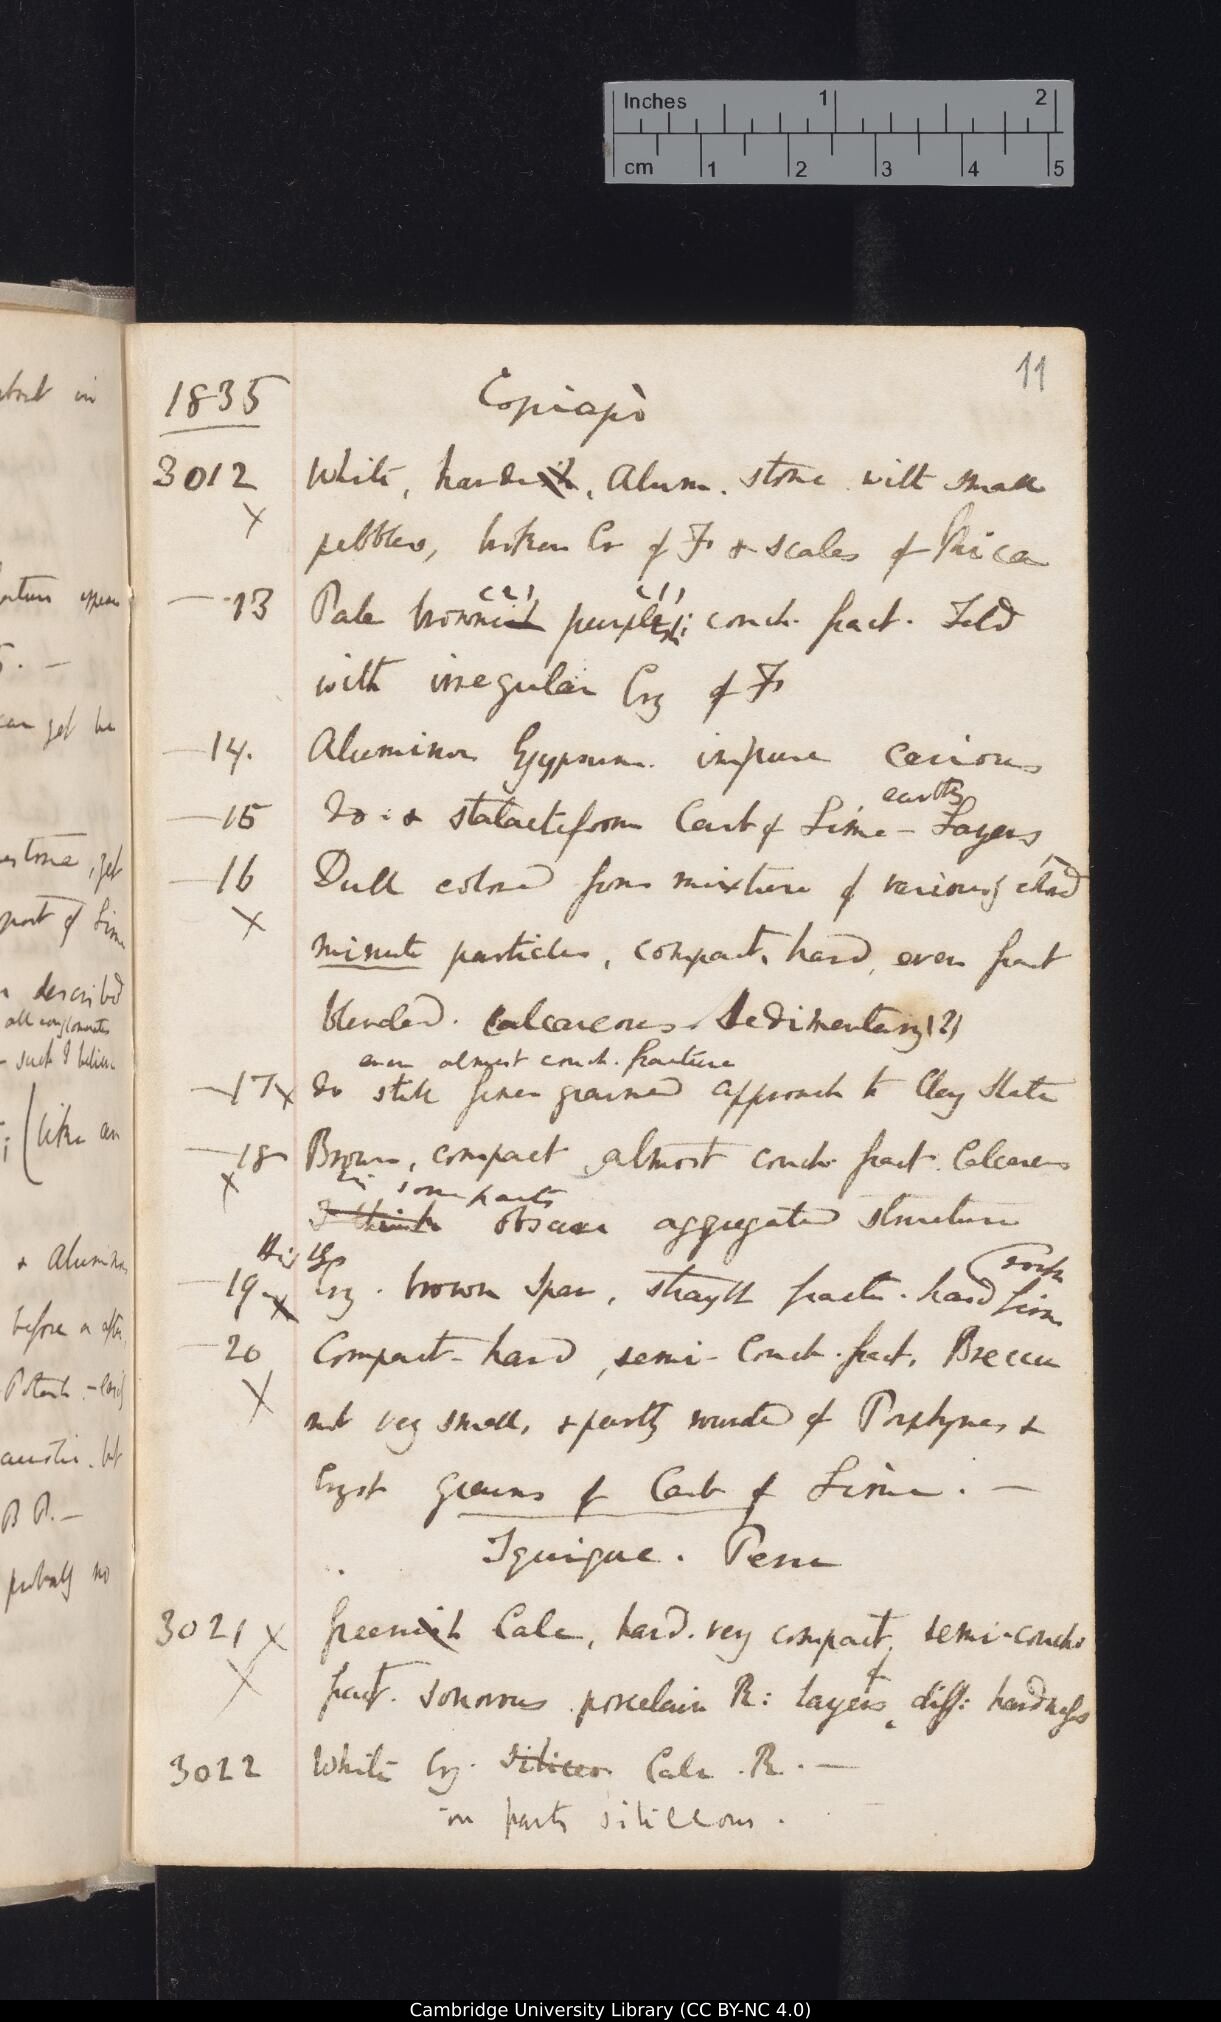 Inches 1 2
cm 1 2 3 4 5
11
1835 Copiapò
3012 White, Alum. stone with small
X pebbles, broken Cr of F & scales of Mica
— 13 Pale purple; conch. fract. Feld
with irregular Cry of F
— 14. Aluminous Gypsum. impure carious
earthy
— 15 Do: & stalactiform Carb of Lime — Layers
— 16 Dull colored from mixture of various clrd
X minute particles, compact, hard, even fract
blended. calcareous. Sedimentary (2)
even almost conch. fracture
— 17 X do still finer grained approach to Clay Slate
— 18 Brown, compact, almost conch. fract. Calcareous
X in some parts
I think obscure aggregated structure
— 19 X Cry. brown Spar, hard
— 20 Compact – hard, semi – Conch. fract. Breccia
X not very small, & partly rounded of Porphyries &
Cryst grains of Carb of Lime. —
Iquique. Peru
3021 X Greenish Calc, hard. very compact, semi-concho
X fract. sonorous porcelain R: layers of diff: hardness
3022 White Cry. Calc. R. —
in parts siliceous.
about in
can get be
stone, yet
part of Lime
described
all conglomerates
– such I believe
(like an
& Aluminous
before or after
but
B P. —
probably no
Cambridge University Library (CC BY-NC 4.0)